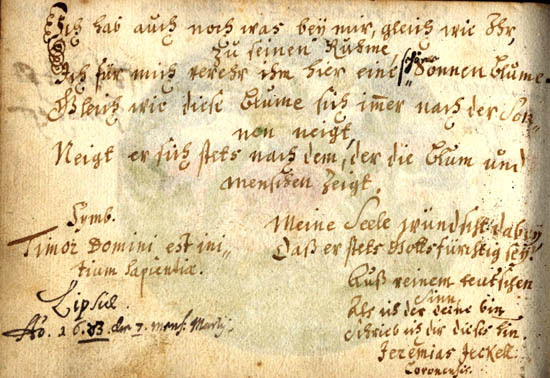 Ich hab auch noch was bey mir, gleich wie Ihr,
zu seinen Ruhme,
Ich für mich verehr ihm hier eine schöne Sonnen blume.
Gleich wie diese blume sich im̃er nach der Son-
nen neigt,
Neigt er sich stets nach dem, der die blum und
menschen zeigt.
Symb.
Timor Domini est ini-
tium sapientiæ.
Lipsiæ.
Ao. 1683. den 7. mens. Martij.
Meine Seele wündscht dabey
Daß er stets Gottsfürchtig sey.
Auß reinem teutschen
Sinn
Als ich der deine bin
Schrieb ich dir dieses hin.
Jeremias Jeckell
Coronensis.